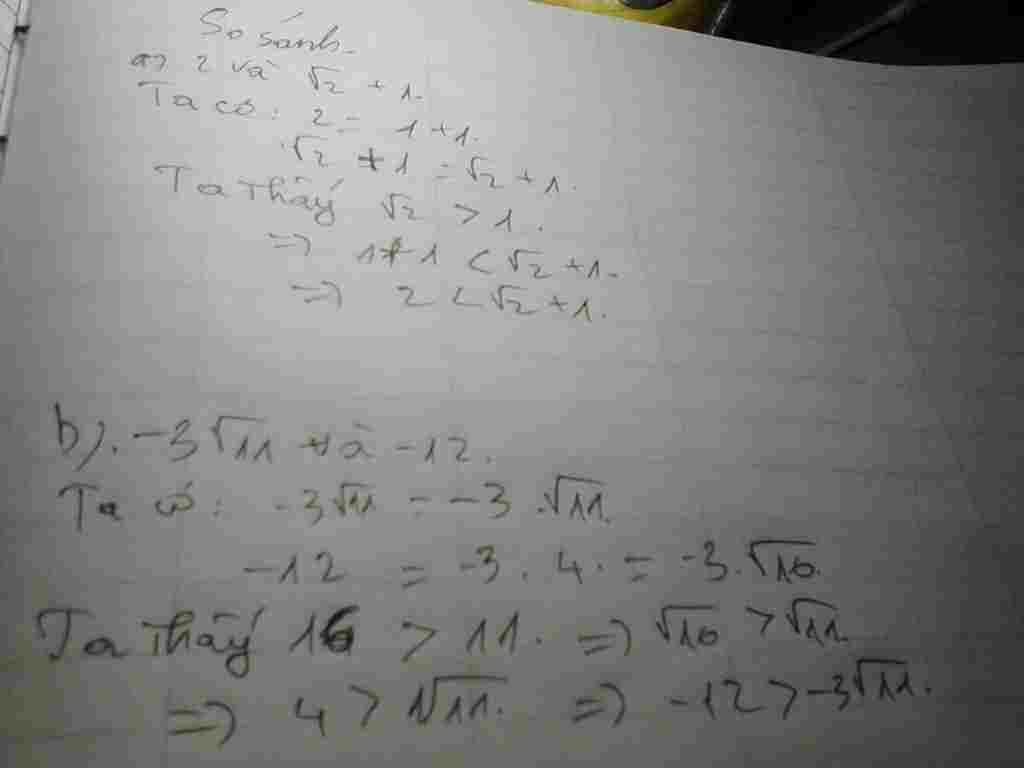 So sánh.
a) 2 và √2 + 1.
Ta có: 2 = 1 + 1.
√2 + 1 = √2 + 1.
Ta thấy √2 > 1.
=> 1 + 1 < √2 + 1.
=> 2 < √2 + 1.
b). -3√11 và -12.
Ta có: -3√11 = -3.√11.
-12 = -3.4. = -3.√16.
Ta thấy 16 > 11. => √16 > √11
=> 4 > √11. => -12 > -3√11.